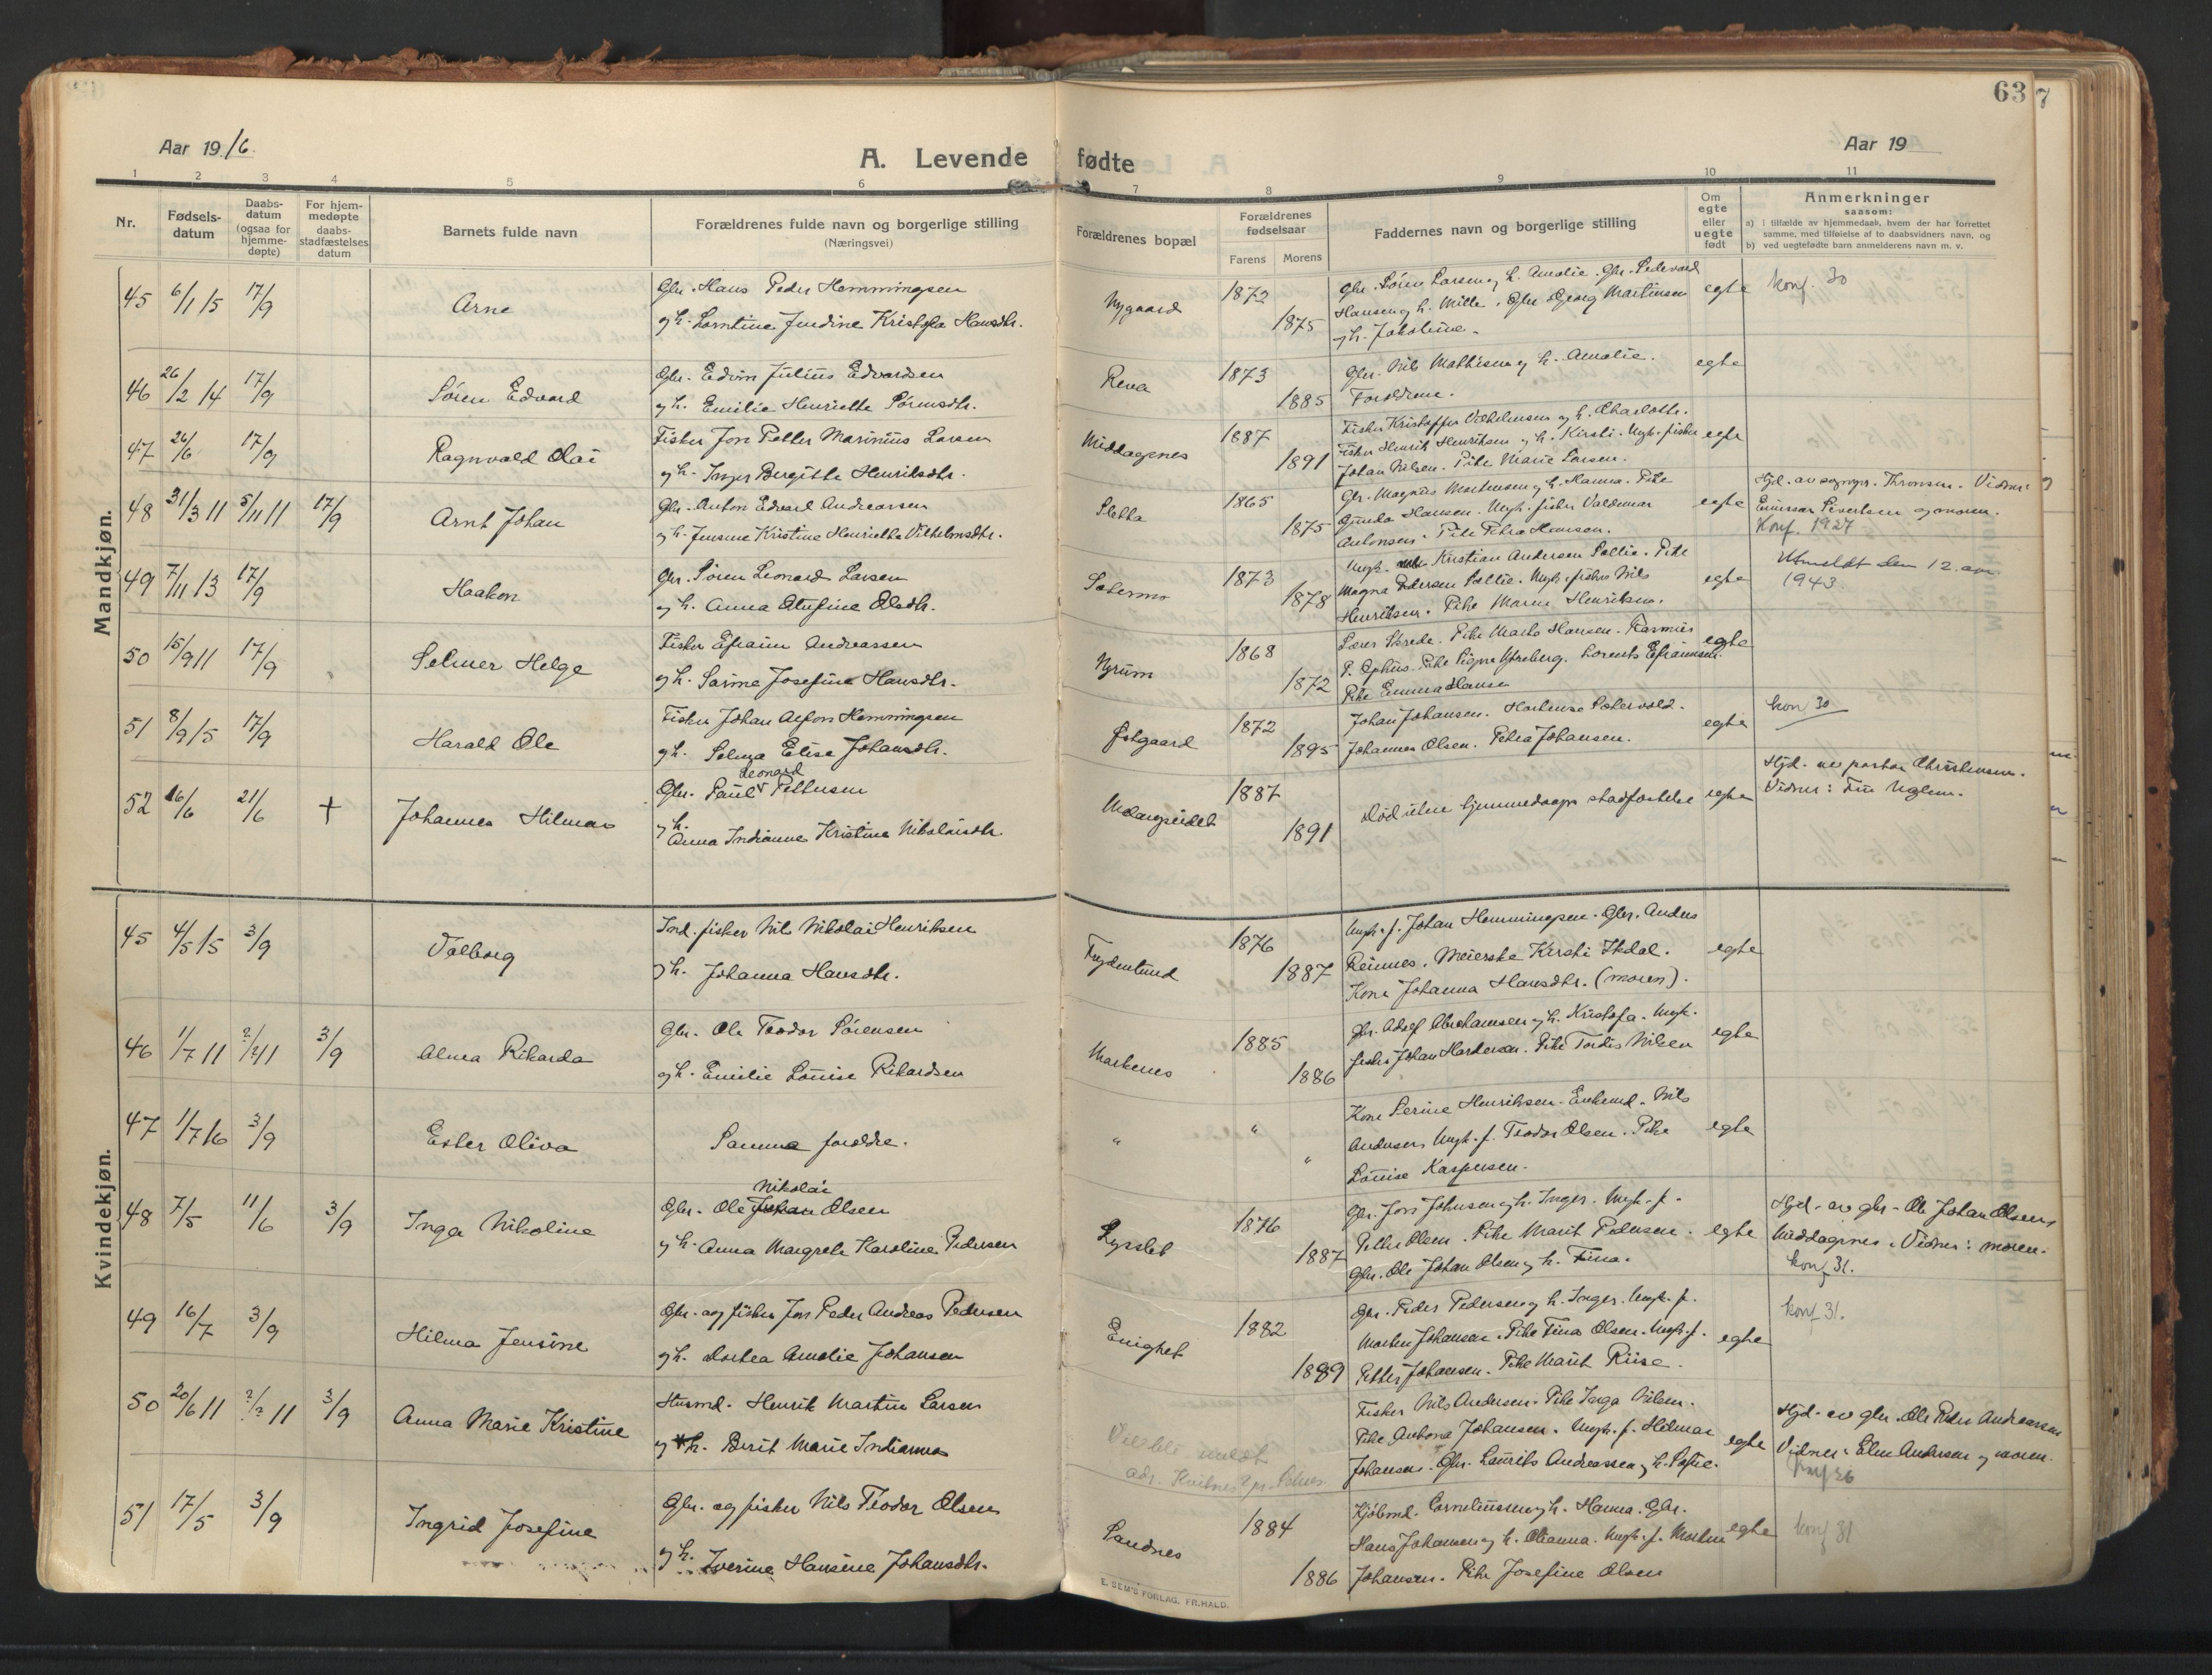 63
7
Aar 19 16.
A. Levende fødte
Aar 19
1 2 3 4 5 6 7 8 9 10 11
Nr.
Fødsels-datum
Daabs-datum (ogsaa for hjemme-døpte)
For hjem-medøpte daabs-stadfæstelses datum
Barnets fulde navn
Forældrenes fulde navn og borgerlige stilling (Næringsvei)
Forældrenes bopæl
Forældrenes fødselsaar
Farens Morens
Faddernes navn og borgerlige stilling
Om egte eller uegte født
Anmerkninger
saasom:
a) i tilfælde av hjemmedaab, hvem der har forrettet samme, med tilføielse af to daabsvidners navn, og
b) ved uegtefødte barn anmelderens navn m. v.
Mandkjøn.
45 6/1 15 17/9 Arne
Gbr. Hans Peder Hemmingsen
og h. Lorntine Jendine Kristofa Hansdtr.
Nygaard 1872 1875
Gbr. Søren Larsen og h. Amalie. Gbr. Pedevard
Hansen og h. Mille. Gbr. Georg Martinsen
og h. Jakobine.
egte konf. 30
46 26/2 14 17/9 Søren Edvard
Gbr. Edvin Julius Edvardsen
og h. Emilie Henriette Sørensdtr.
Rena 1873 1885
Gbr. Nils Mathisen og h. Amalie.
Forældrene.
egte
47 26/6 17/9 Ragnvald Olai
Fisker Jon Petter Marinius Larsen
og h. Inger Bergitte Henriksdtr.
Middagsnes 1887 1891
Fisker Kristoffer Vilhelmsen og h. Charlotte.
Fisker Henrik Henriksen og h. Kirsti. Ungk. fisker
Johan Nilsen. Pike Marie Larsen.
egte
48 31/3 11 5/11 11 17/9 Arnt Johan
Gbr. Anton Edvard Andreassen
og h. Jensine Kristine Henriette Vilhelmsdtr.
Sletta 1865 1875
Gbr. Magnus Mortensen og h. Hanna. Pike
Gunda Hansen. Ungk. fisker Valdemar
Antonsen. Pike Petra Hansen.
egte
Hjd. av sognepr. Thronsen. Vidner:
Emissær Sivertsen og moren.
Konf. 1927
49 7/11 13 17/9 Haakon
Gbr. Søren Leonard Larsen
og h. Anna Olufine Olsdtr.
1873 1878
Ungk. Kristian Andersen Sollie. Pike
Magna Pedersen Sollie. Ungk. fisker Nils
Henriksen. Pike Maren Henriksen.
egte
Utmeldt den 12.
1943.
50 15/9 11 17/9 Selmer Helge
Fisker Efraim Andreassen
og h. Sarine Josefine Hansdtr.
Nyrum 1868 1872
Lærer Skrede. Pike Marta Hansen. Rasmus
P. Ophus. Pike Signe Ytreberg. Lorents Efraimsen.
Pike Emma Hansen
egte
51 8/9 15 17/9 Harald Ole
Fisker Johan Alfon Hemmingsen
og h. Selma Elise Johansdtr.
Østgaard 1872 1895
Johan Johansen. Hortense Sætervold.
Johannes Olsen. Petra Johansen.
egte kon 30
52 16/6 21/6 + Johannes Hilmar
Leonard
Gbr. Paul Pettersen
og h.
Anna Indianna Kristine Nikolaisdtr.
1887 1891
Død uten hjemmedaaps stadfæstelse egte
Hjd. av pastor Christensen.
Vidner: Fru
Kvindekjøn.
45 4/5 15 3/9 Valborg
Ind. fisker Nils Nikolai Henriksen
og h. Johanna Hansdtr.
Frydenlund 1876 1887
Ungk. f. Johan Hemmingsen. Gbr. Anders
Reines. Meierske Kirsti Ilsdal.
Kone Johanna Hansdtr. (moren).
egte
46 1/7 11 ?/? 11 3/9 Alma Rikarda
Gbr. Ole Teodor Sørensen
og h. Emilie Louise Rikardsen
Markenes 1885 1886
Gbr. Adolf Abrahamsen og h. Kristofa. Ungk.
fisker Johan Hardersen. Pike Tordis Nilsen
egte
47 1/7 16 3/9 Ester Oliva
Samme forældre.
" " "
Kone Serine Henriksen. Enkemd. Nils
Andersen. Ungk. f. Teodor Olsen. Pike
Louise Kaspersen.
egte
48 7/5 11/6 3/9 Inga Nikoline
Nikolai
Gbr. Ole Johan Olsen
og h. Anna Margrete Karoline Pedersen
Lysslet 1876 1887
Gbr. Jon Johnsen og h. Inger. Ungk. f.
Petter Olsen. Pike Marit Pedersen.
Gbr. Ole Johan Olsen og h. Fina.
egte
Hjd. av gbr. Ole Johan Olsen
Middagsnes. Vidner: moren.
konf 31.
49 16/7 3/9 Hilma Jensine
Gbr. og fisker Jon Peder Andreas Pedersen
og h. Dortea Amalie Johansen
Enighet 1882 1889
Gbr. Peder Pedersen og h. Inger. Ungk. f.
Morten Johansen. Pike Fina Olsen. Ungk. f.
Petter Johansen. Pike Marit Riise.
egte konf 31.
50 20/6 11 ?/? 11 3/9 Anna Marie Kristine
Husmd. Henrik Martin Larsen
og h. Berit Marie Indianna
Vil bli meldt
adr.
Fisker Nils Andersen. Pike Inga Nilsen.
Pike Antona Johansen. Ungk. f. Hilmar
Johansen. Gbr. Laurits Andreassen og h. Sofie.
egte
Hjd. av gbr. Ole Peder Andreassen
Vidner: Elen Andersen og moren.
Konf 26
51 17/5 3/9 Ingrid Josefine
Gbr. og fisker Nils Teodor Olsen
og h. Iverine Hansine Johansdtr.
Sandnes 1884 1886
Kjøbmd. Corneliussen og h. Hanna. Gbr.
Hans Johansen og h. Oleanna. Ungk. f. Morten
Johansen. Pike Josefine Olsen
egte konf 31
E. SEM'S FORLAG, FR.HALD.